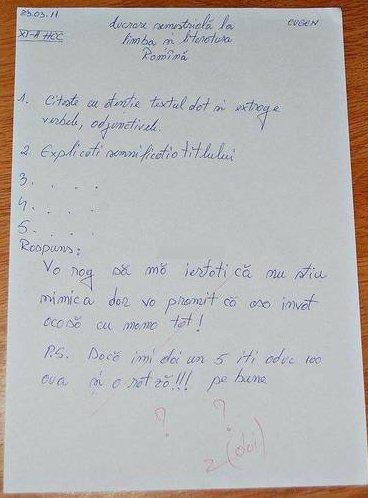 23.03.11
XI-A HCC
EUGEN
Lucrare semestrială la
limba și literatura
Romînă
1. Citește cu atenție textul dat și extrage
verbele, adjunctivele.
2. Explicati semnificatia titlului
3. . . . .
4. . . . .
5. . . . .
Raspuns:
Va rog să mă iertati că nu știu
nimica dar va promit că aso invat
acasă cu mama tot!
P.S. Dacă imi dai un 5 iti aduc 100
oua și o rată!!! pe bune
? ?
2 (doi)